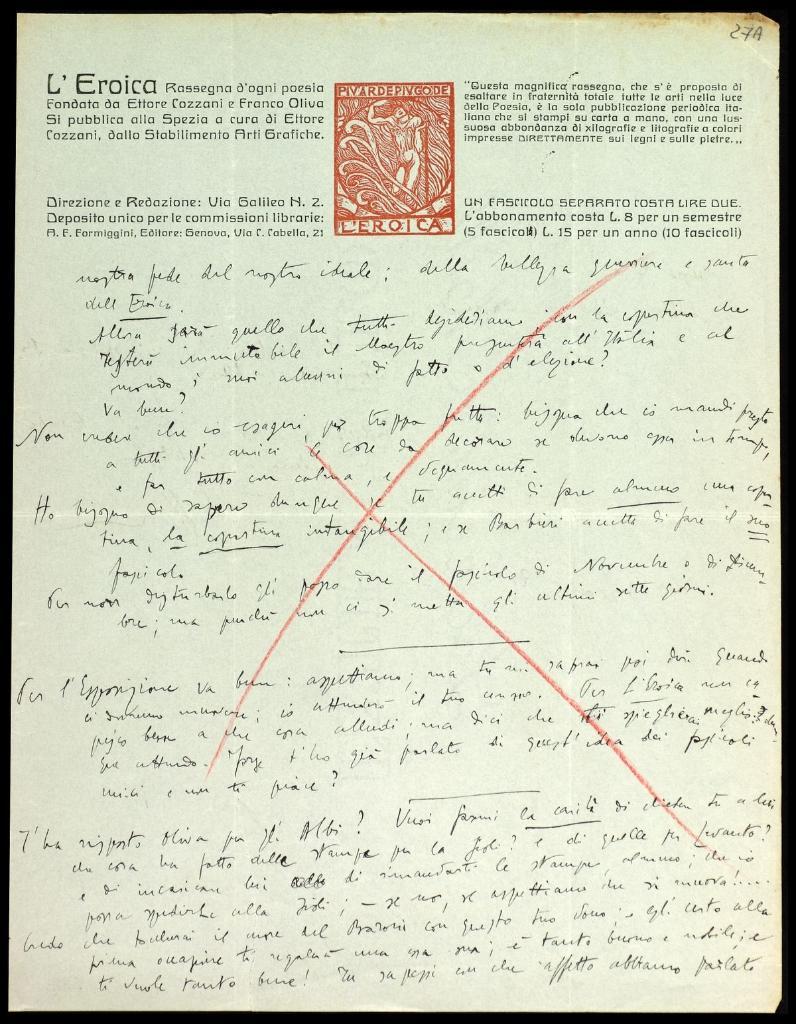 27A
L'Eroica Rassegna d'ogni poesia
Fondata da Ettore Cozzani e Franco Oliva
Si pubblica alla Spezia a cura di Ettore
Cozzani, dallo Stabilimento Arti Grafiche.
Direzione e Redazione: Via Galileo N. 2.
Deposito unico per le commissioni librarie:
A. F. Formiggini, Editore: Genova, Via C. Cabella, 21
PIVARDEPIVGODE
L'EROICA
"Questa magnifica rassegna, che s'è proposta di
esaltare in fraternità totale tutte le arti nella luce
della Poesia, è la sola pubblicazione periodica ita-
liana che si stampi su carta a mano, con una lus-
suosa abbondanza di xilografie e litografie a colori
impresse DIRETTAMENTE sui legni e sulle pietre.,,
UN FASCICOLO SEPARATO COSTA LIRE DUE.
L'abbonamento costa L. 8 per un semestre
(5 fascicoli) L. 15 per un anno (10 fascicoli)
nostra fede del nostro ideale; della bellezza guerriera e santa
dell'Eroica.
Allora sarà quello che tutti desideriamo: con la copertina che
resterà immutabile il Maestro presenterà all'Italia e al
mondo i suoi alunni di fatto o d'elezione?
Va bene?
Non credere che io esageri, per troppa fretta: bisogna che io mandi presto
a tutti gli amici le cose da decorare se devono essere in tempo,
e far tutto con calma, e degnamente.
Ho bisogno di sapere dunque se tu accetti di fare almeno una coper-
tina, la copertina intangibile; e se Barbieri accetta di fare il suo
fascicolo.
Per non disturbarlo gli posso dare il fascicolo di Novembre o di Dicem-
bre; ma purché non ci si metta gli ultimi sette giorni.
Per l'Esposizione va bene: aspettiamo; ma tu mi saprai poi dire quando
ci dovremo muovere; io attenderò il tuo cenno. Per L'Eroica non ca-
pisco bene a che cosa alludi; ma dici che ti spiegherai meglio:
attendo. Forse t'ho già parlato di quest'idea dei fascicoli
unici e non ti piace?
T'ha risposto Oliva per gli Albi? Vuoi farmi la carità di chieder tu a lui
che cosa ha fatto delle stampe per la Zioli? e di quelle per Levanto?
e di incaricare lui di rimandarti le stampe, almeno; che io
possa spedirle alla Zioli; — se no, se aspettiamo che si muova!....
Credo che toccherai il cuore del Baroni con questo tuo dono; e egli certo alla
prima occasione ti regalerà una cosa sua; è tanto buono e nobile; e
ti vuole tanto bene! Tu sapessi con che affetto abbiamo parlato